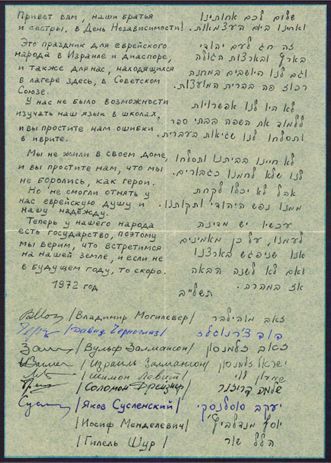 Привет вам, наши братья
и сестры, в День Независимости!
Это праздник для еврейского
народа в Израиле и диаспоре,
и также для нас, находящихся
в лагере здесь, в Советском
Союзе.
У нас не было возможности
изучать наш язык в школах,
и вы простите нам ошибки
в иврите.
Мы не жили в своем доме,
и вы простите нам, что мы
не боролись, как герои.
Но не смогли отнять у
нас еврейскую душу и
нашу надежду.
Теперь у нашего народа
есть государство, поэтому
мы верим, что встретимся
на нашей земле, и если не
в будущем году, то скоро.
1972 год
שלום לכם אחותינו
ואחינו ביום העצמאות.
זה חג לעם יהודי
בארץ ובארצות הגולה
וגם לנו היושבים במחנה
פה בברית המועצות.
לא היו לנו אפשרויות
ללמוד את השפה בבתי ספר
ותסלחו לנו שגיאות בעברית.
לא חיינו בביתנו ותסלחו
לנו שלא לחמנו כגבורים.
אבל לא יכלו לקחת
ממנו נפש היהודי ותקותנו.
עכשיו יש מדינה
לעמנו, על כן מאמינים
אנו שנפגש בארצנו
ואם לא לשנה הבאה
אז במהרה.
תשל״ב
/Владимир Могилевер/ זאב מוהילבר
/Давид Черноглаз/ דוד צ'רנוגלז
/Вульф Залмансон/ זאב זלמנסון
/Израиль Залмансон/ ישראל זלמנסון
/Шимон Левит/ שמעון לוי
/Соломон Дрейзнер/ שלמה דריזנר
/Яков Сусленский/ יעקב סוסלנסקי
/Иосиф Менделевич/ יוסף מנדלביץ'
/Гилель Шур/ הלל שור